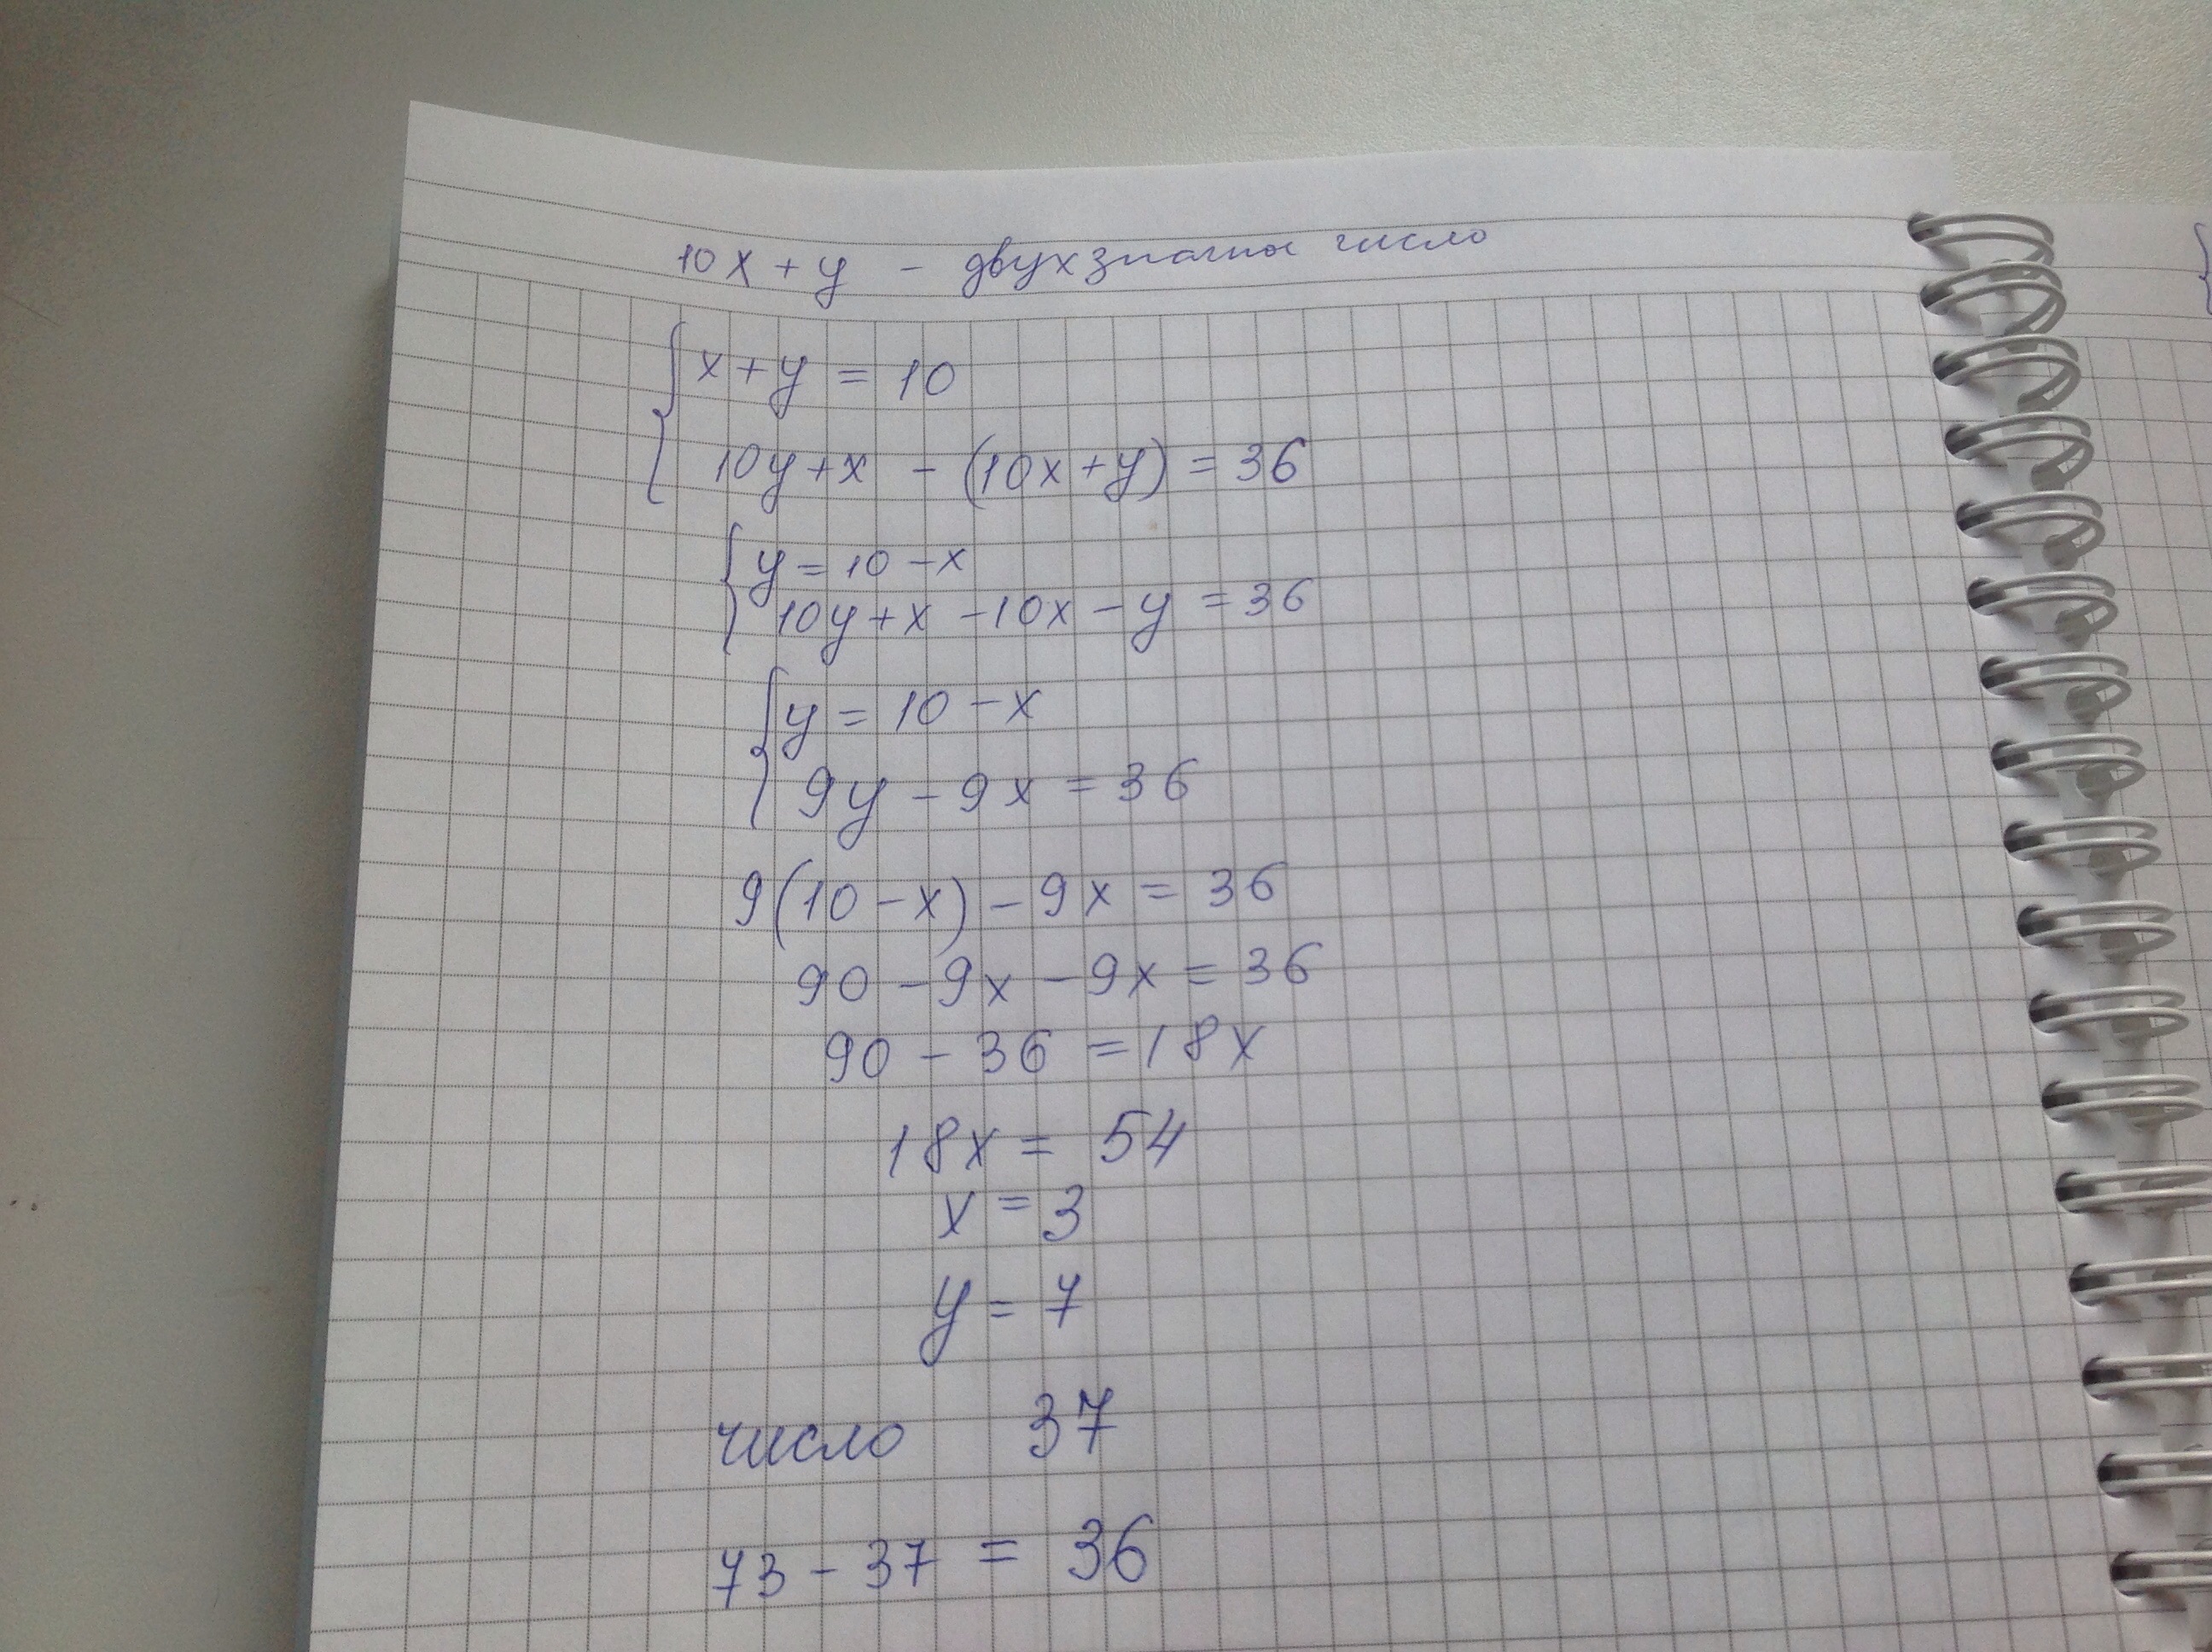 10x + y - двухзначное число
{ x + y = 10
10y + x - (10x + y) = 36
{ y = 10 - x
10y + x - 10x - y = 36
{ y = 10 - x
9y - 9x = 36
9(10 - x) - 9x = 36
90 - 9x - 9x = 36
90 - 36 = 18x
18x = 54
x = 3
y = 7
число 37
73 - 37 = 36